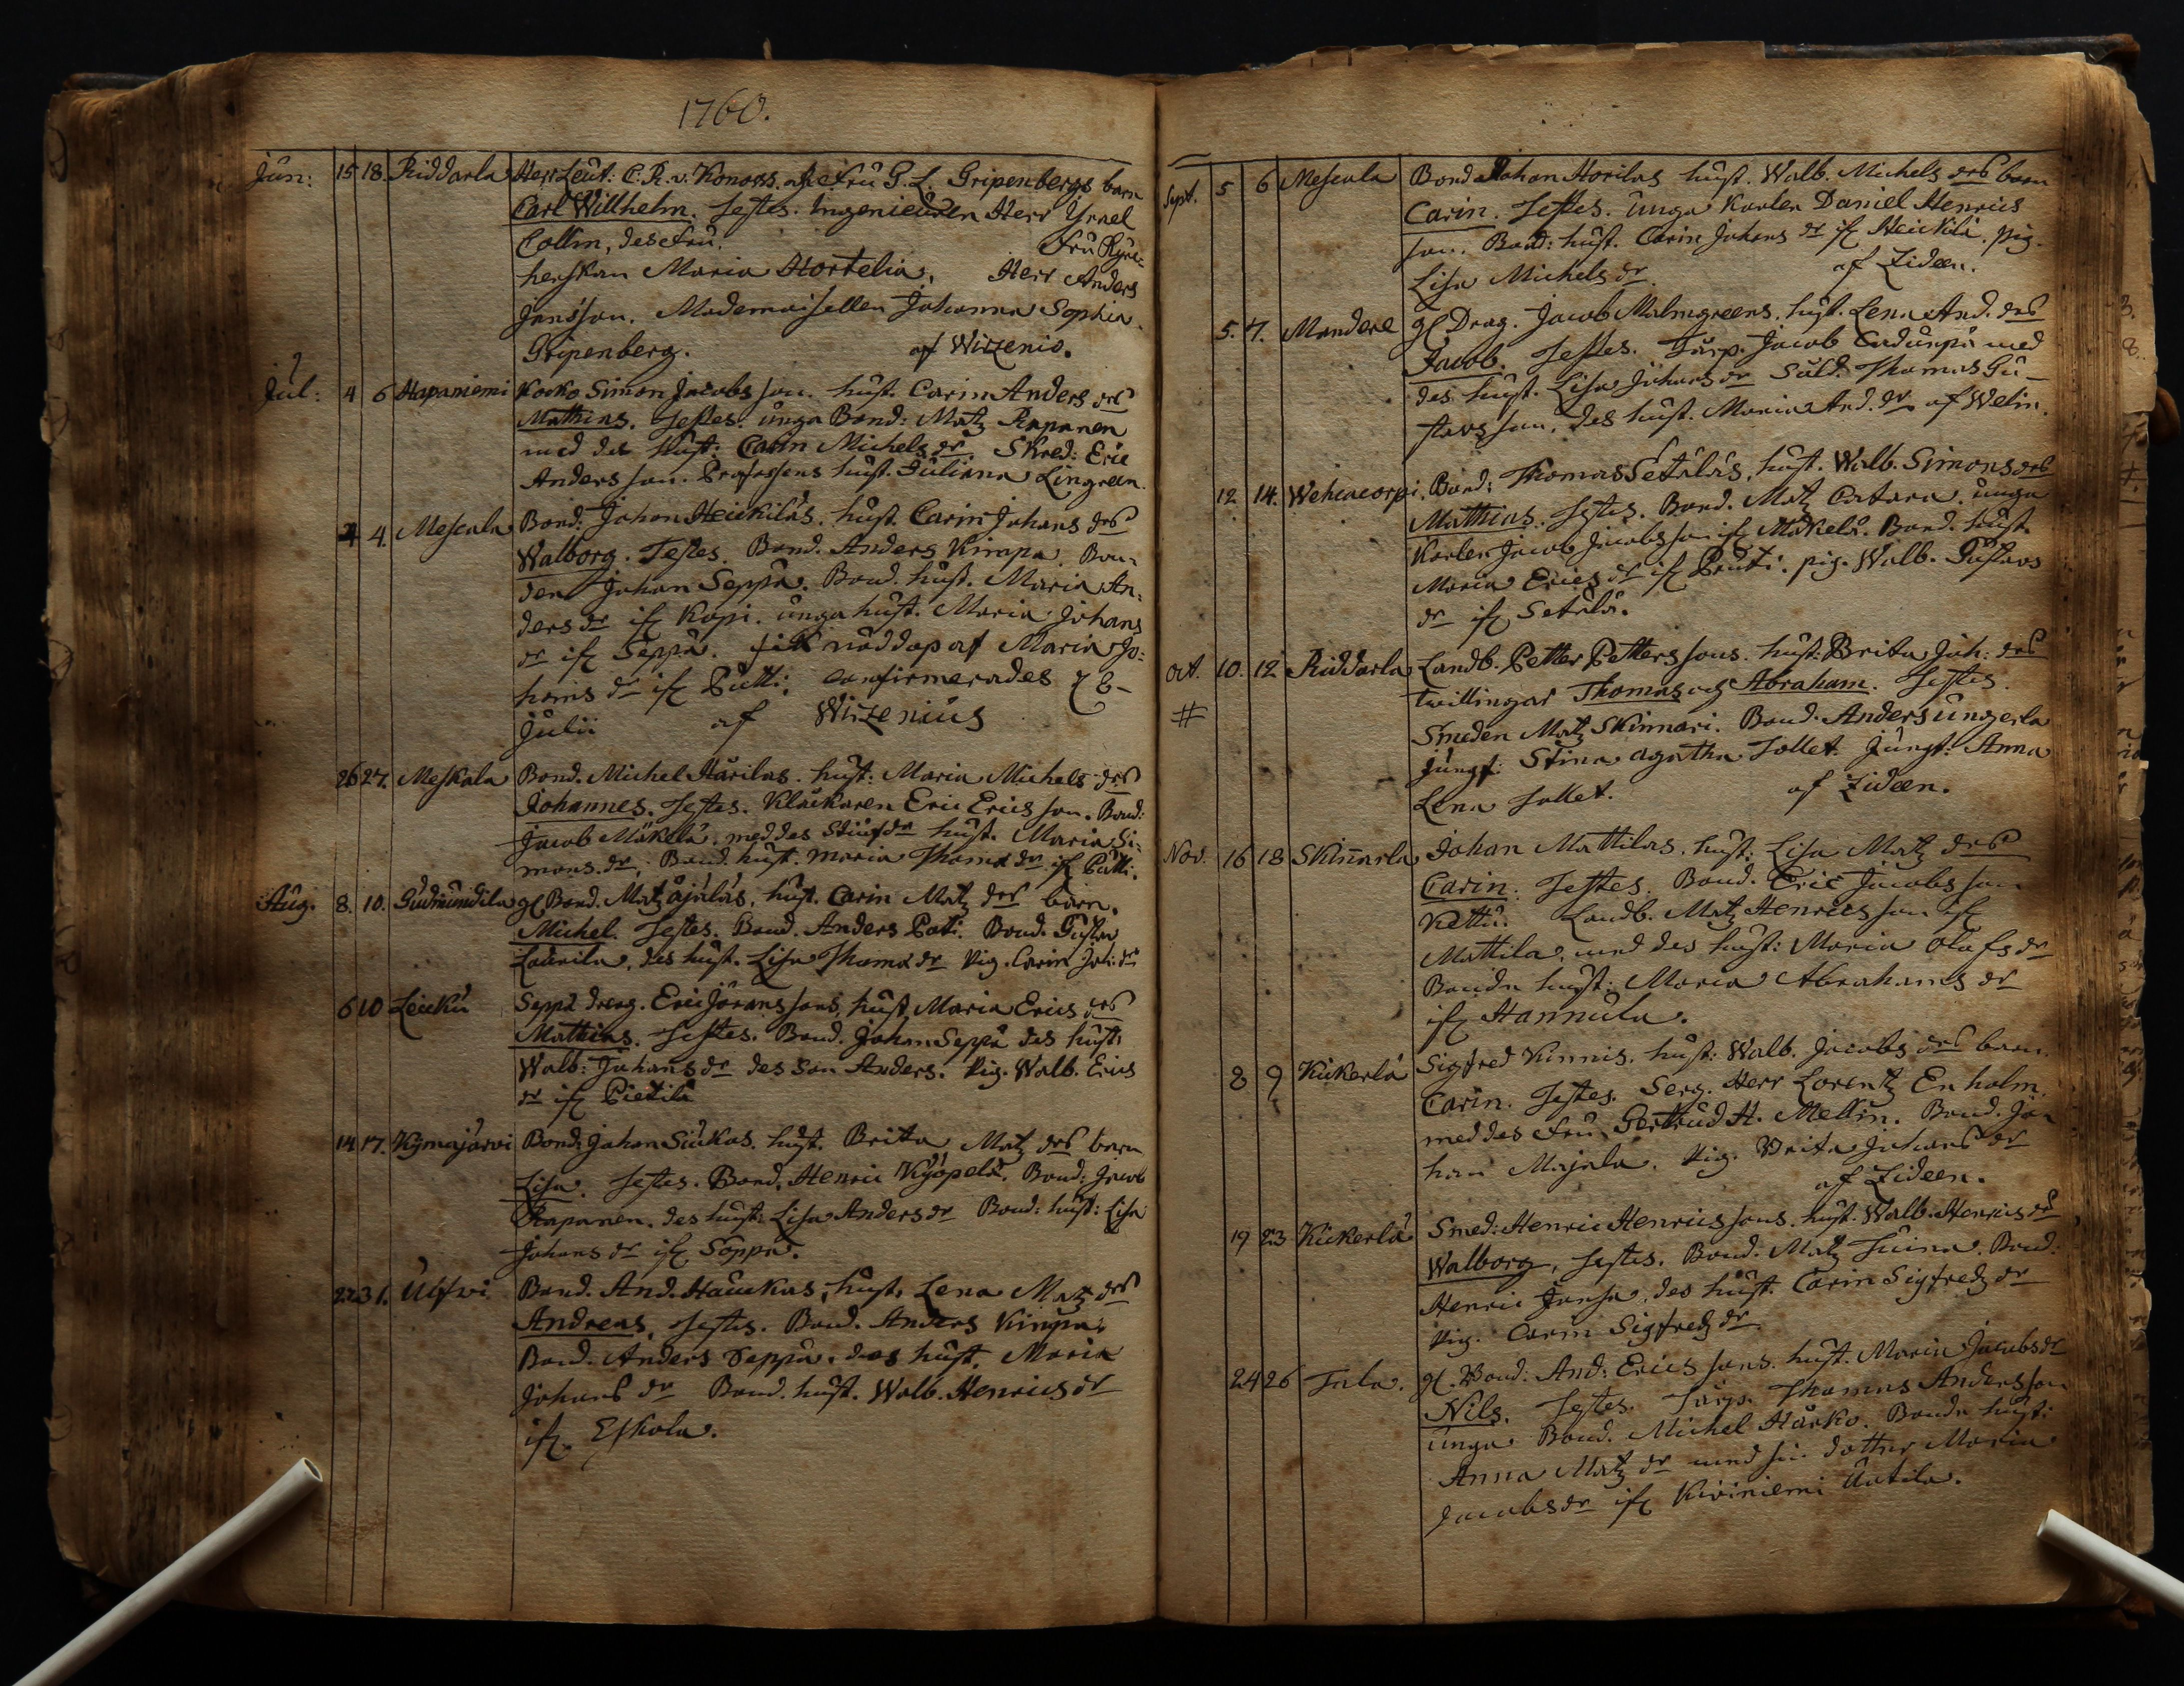 1760.
Jun: 15 18. Riddarla Herr Leut: C. R. v. Konows. och Fru G. L. Gripenbergs barn
Carl Willhelm. Testes. Ingenieuren Herr Ysrael
Collin, des Fru. Fru Ryre-
herskan Maria Hortelia, Herr Anders
Jansson. Mademoisellen Johanna Sophia
Gripenberg. af Wirzenio.
Jul: 4 6 Hapaniemi Kocko Simon Jacobsson. hust. Carin Anders drs
Mathias. Testes. unga Bond: Matz Rapanen
med des Hust: Carin Michels dr. Skred: Eric
Andersson. Professens hust. Juliana Lingreen.
4 4. Mescala Bond: Johan Heickiläs. hust. Carin Johans drs
Walborg. Testes. Bond. Anders Kimpa. Bon-
den Johan Seppä. Bond. hust. Maria An-
ders dr ifr Kopi. unga hust. Maria Johans
dr ifr Seppä. fick nöddop af Maria Jo-
hans dr ifr Putti. confirmerades
Julii af Wirzenius
26 27. Meskala Bond. Michel Härilas. hust: Maria Michels drs
Johannes. Testes. Kläckaren Eric Ericsson. Bond:
Jacob Mäkelä, med des Stiufdr hust. Maria Si-
mons dr. Bond. hust. Maria Thomæ dr ifr Putti.
Aug. 8. 10. Gudmundila gl Bond. Matz Äjäläs, hust. Carin Matz drs barn.
Michel. Testes. Bond. Anders Poti. Bond. Gustav
Laurila, des hust. Lisa Thomæ dr Pig. Carin Joh: dr
6 10 Leicku Seppä dreng. Eric Jöranssons, hust Maria Erics drs
Mathias. Testes. Bond. Johan Seppä des hust:
Walb: Johans dr des son Anders. Pig. Walb. Erics
dr ifr Pietilä
14 17. Kymajärvi Bond: Johan Siukas. hust. Brita Matz drs barn
Lisa. Testes. Bond. Henric Kyöpelä. Bond: Jacob
Rapanen. des hust: Lisa Anders dr Bond: hust: Lisa
Johans dr ifr Soppa.
27 31. Ulfwi Bond. And. Hauckas, hust. Lena Matz drs
Andreas, Testes. Bond. Anders Kimpa.
Bond. Anders Seppä. des hust. Maria
Johans dr Bond. hust. Walb. Henrics dr
ifr Eskola.
Sept. 5 6 Mescala Bond Johan Horilas hust. Walb. Michels drs barn
Carin. Testes. unga Karlen Daniel Henrics
son. Bond: hust. Carin Johans dr ifr Heickilä. pig.
Lisa Michels dr. af Zideen.
5. 7. Mandere gl Drag. Jacob Malmgreens. hust. Lena And. drs
Jacob. Testes. Torp. Jacob Caduspä med
des hust. Lisa Johans dr Sold. Thomas Gu-
stavsson, des hust. Maria And. dr af Welin.
12 14. Wehcacorpi. Bond: Thomas Setäläs, hust. Walb. Simons drs
Mathias. Testes. Bond. Matz Catara. unga
Karlen Jacob Jacobsson ifr Mäkelä. Bond. hust.
Maria Erics dr ifr Pentti. pig. Walb. Gustavs
dr ifr Setälä.
Oct. 10. 12 Riddarla Landb. Petter Petterssons. hust: Brita Joh: drs
# twillingar Thomas och Abraham. Testes.
Smeden Matz Skinnari. Bond. Anders ungerla
Jungf: Stina Agatha Tollet Jungf: Anna
Lena Tollet. af Zideen.
Nov. 16 18 Skinnarla Johan Mattilas. hust: Lisa Matz drs
Carin. Testes. Bond. Eric Jacobsson
Kettu. Landb. Matz Henricsson ifr
Mattila, med des hust: Maria Olafs dr
Bonde hust: Maria Abrahams dr
ifr Hannula.
8 9 Kickerlä Sigfred Kinnis. hust: Walb. Jacobs drs barn.
Carin. Testes. Serg. Herr Lorentz Enholm
med des Fru Gertrud H. Mellin. Bond. Jo-
han Majala. Pig. Brita Johans dr
af Zideen.
19 23 Kickerlä Smed: Henric Henricssons. hust. Walb. Henrics drs
Walborg, Testes. Bond. Matz Tuima. Bond:
Henric Junsa, des hust. Carin Sigfredz dr
Pig. Carin Sigfredz dr
24 26 Tala. gl. Bond: And: Ericssons. hust. Maria Jacobs dr
Nils. Testes. Torp. Thomas Andersson
unga Bond. Michel Härko. Bonde hust:
Anna Matz dr med sin dotter Maria
Jacobs dr ifr Kiviniemi Uotila.